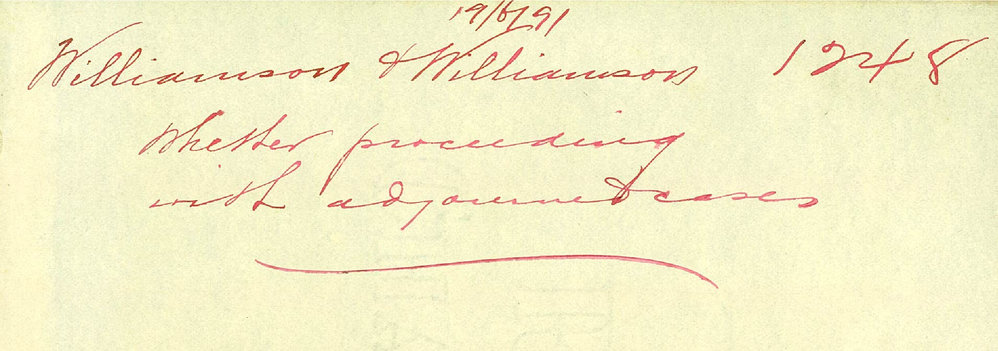 19/6/91
Williamson & Williamson 1248
Whether proceeding
with adjourned cases